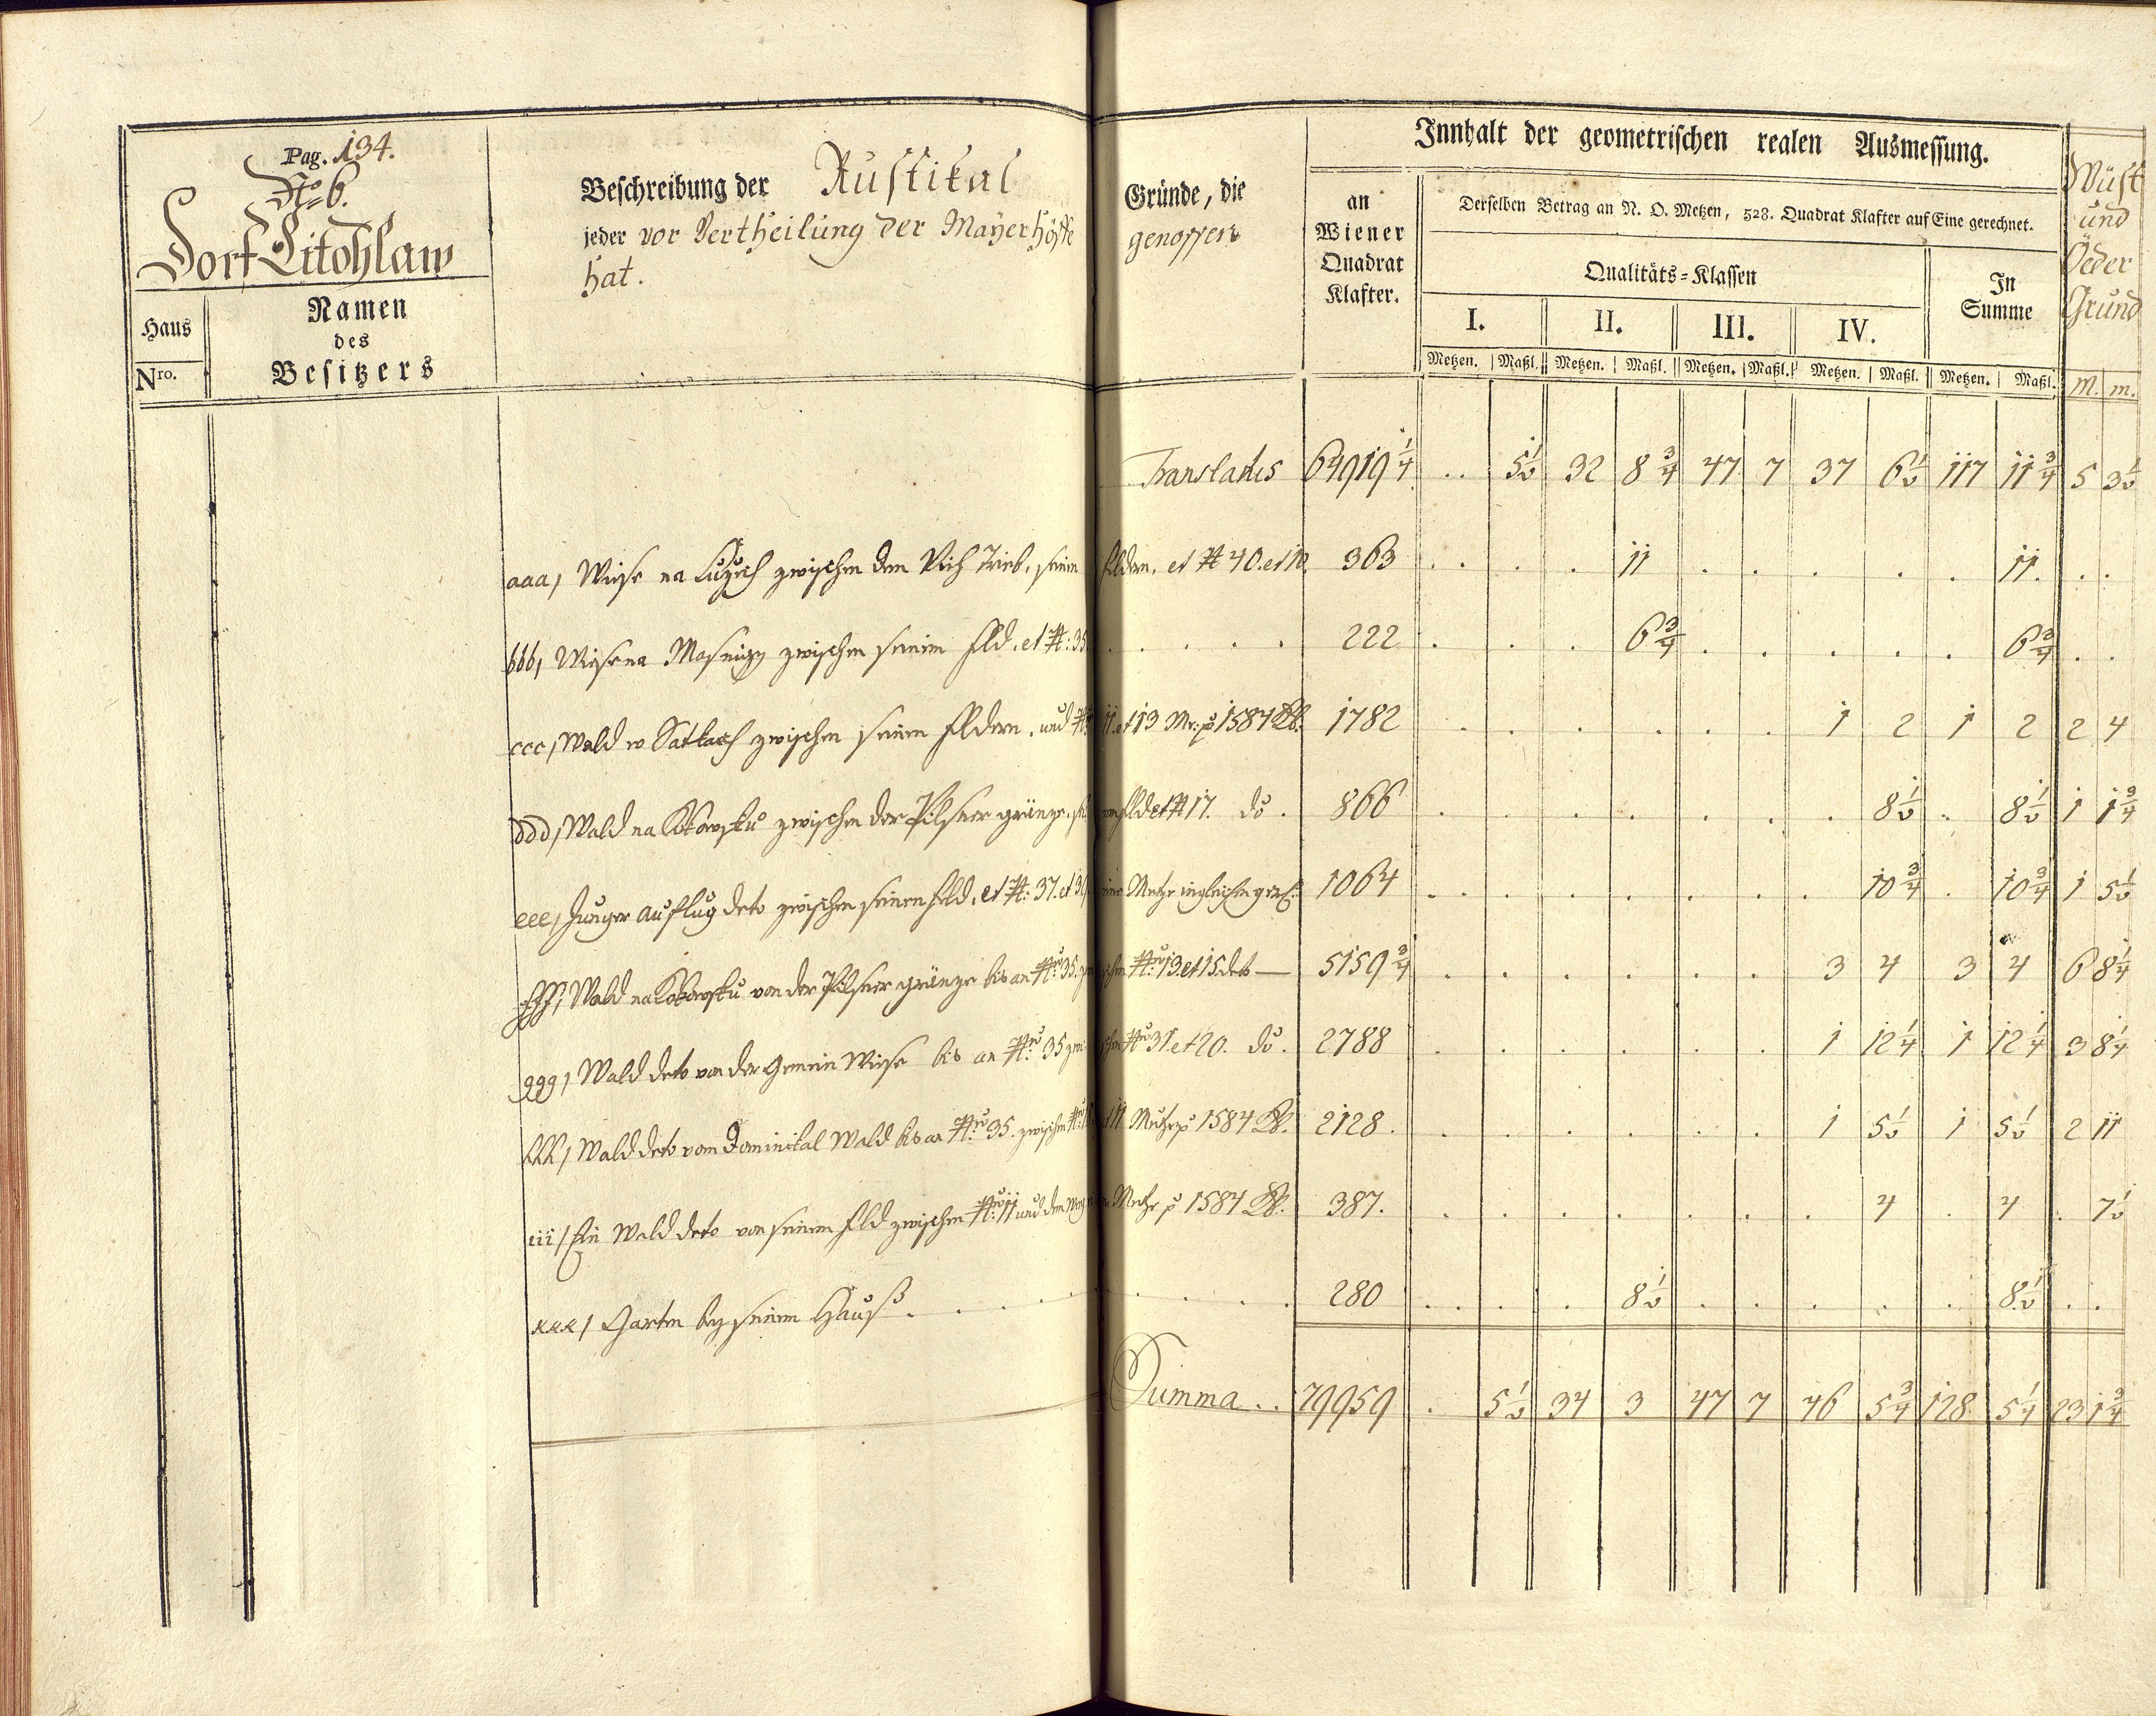 Pag. 134.
No 6.
Dorf Litohlaw
Haus Nro.
Namen
des
Besitzers
Beschreibung der Rustikal Gründe, die
jeder vor Vertheilung der Mayerhöffe genossen
hat.
Innhalt der geometrischen realen Ausmessung.
an
Wiener
Quadrat
Klafter.
Derselben Betrag an N. O. Metzen, 528. Quadrat Klafter auf Eine gerechnet.
Qualitäts-Klassen
In
Summe
I. II. III. IV.
Metzen. Maßl. Metzen. Maßl. Metzen. Maßl. Metzen. Maßl. Metzen. Maßl.
Wüst
und
Öeder
Grund
M. m.
Translatus 64919 1/4 . . 5 1/2 32 8 3/4 47 7 37 6 1/2 117 11 3/4 5 3 1/2
aaa, Wiese na zwischen dem Vieh Trieb, seinen feldern, et No 40. et 363 . . . 11 . . . . . 11. . .
bbb, Wiese na zwischen seinem feld, et No: 35 . . . . . 222 . . . 6 3/4 . . . . . 6 3/4 . .
ccc, Wald w zwischen seinen feldern, und No 11. et 13 Mr: p 1584 1782 . . . . . . 1 2 1 2 2 4
ddd, Wald na zwischen der Pilsner gränze, seinem feld et No 17. do. 866 . . . . . . . 8 1/2 . 8 1/2 1 1 3/4
eee, Junger auflug deto zwischen seinen feld, et No: 37. et 1064 . . . . . . . 10 3/4 . 10 3/4 1 5 1/2
fff, Wald na von der Pilsner gränze bis an No 35. zwischen No 13. et 15 deto — 5159 3/4 . . . . . . 3 4 3 4 6 8 1/4
ggg, Wald deto von der Gemein Wiese bis an No 35 zwischen No 31. et 20. do. 2788 . . . . . . 1 12 1/4 1 12 1/4 3 8 1/4
hhh, Wald deto vom Dominikal Wald bis an No 35. zwischen et 11 p 1584 2128. . . . . . . 1 5 1/2 1 5 1/2 2 11
iii, Ein Wald deto von seinem feld zwischen No 11 und dem p 1584 387. . . . . . . . 4 . 4 . 7 1/2
kkk, Garten bey seinem Hauß . . . . . . . 280 . . . 8 1/2 . . . . . 8 1/2 . .
Summa . . 79959 . 5 1/2 34 3 47 7 46 5 3/4 128 5 1/4 23 1 3/4